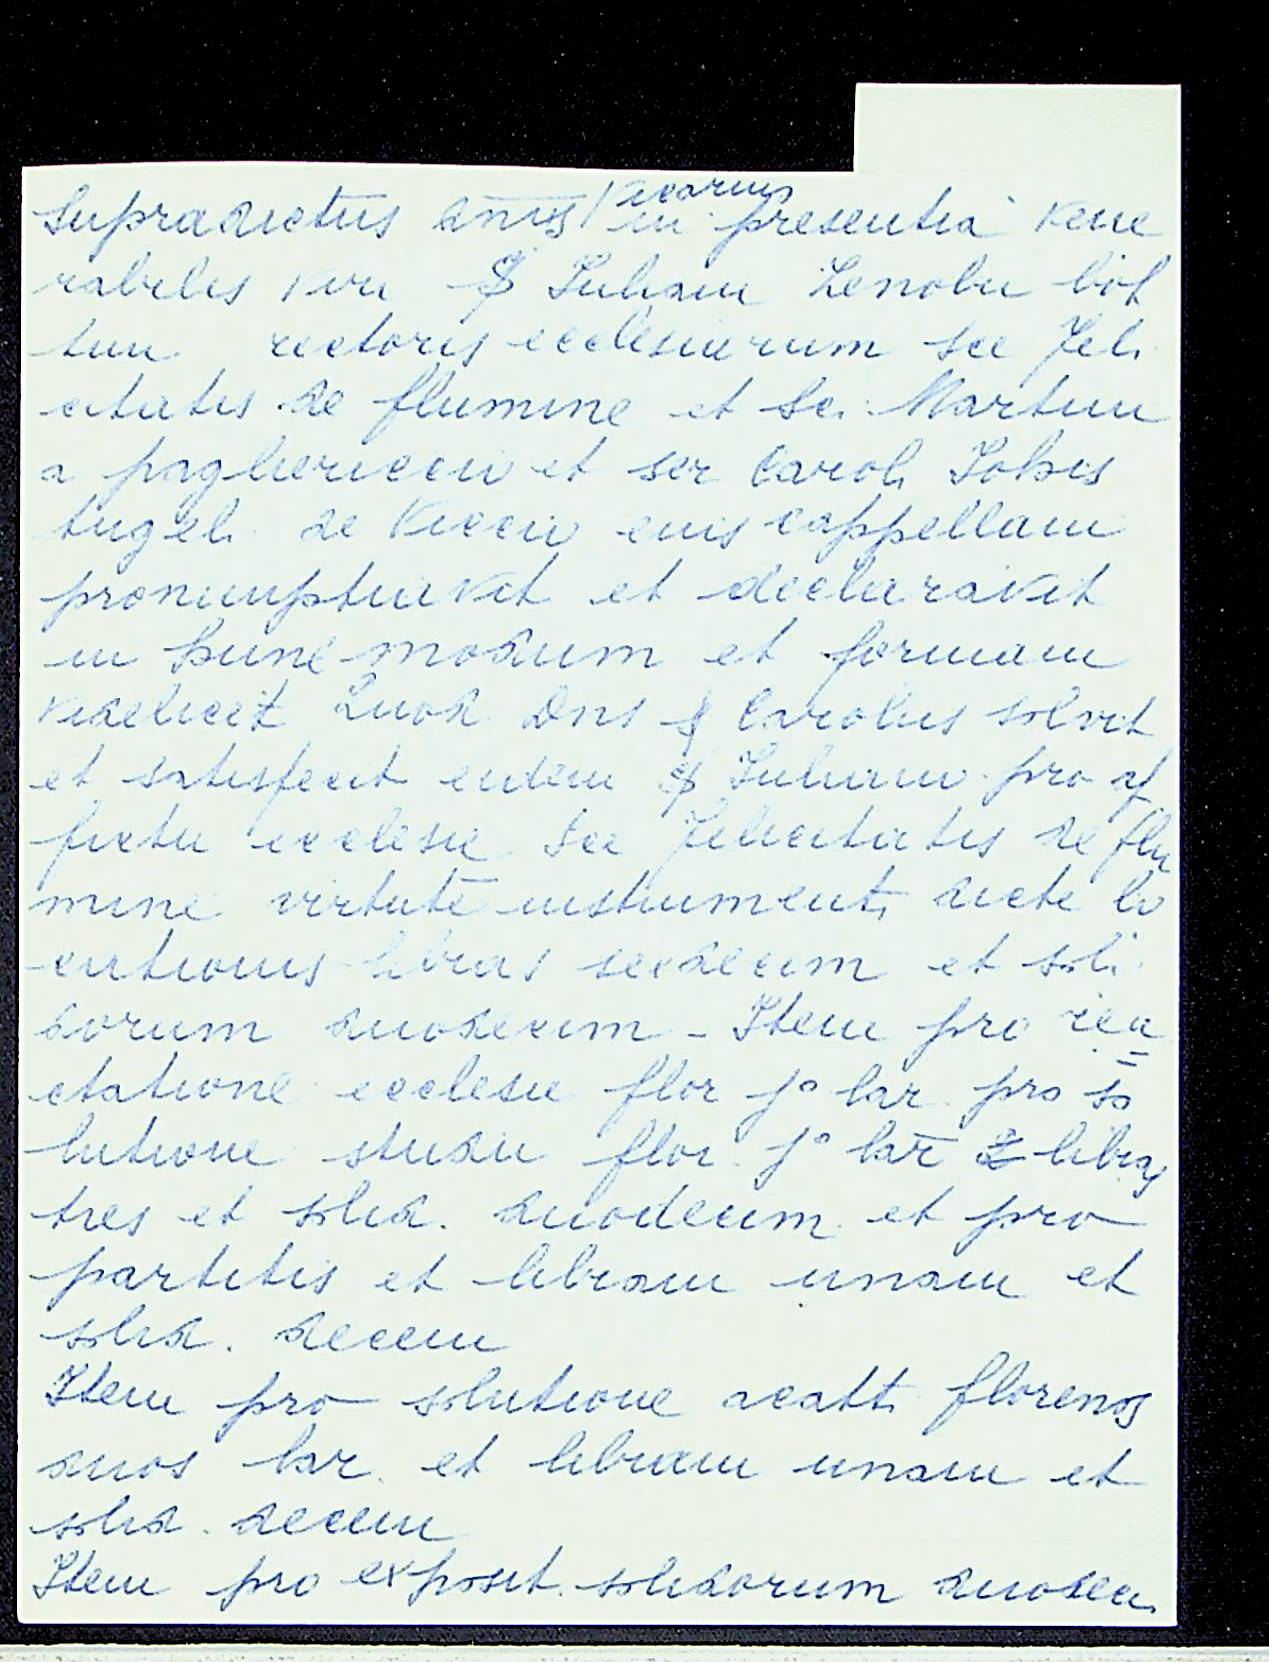 Supradictus dnus Vicarius in presentia vene
rabilis viri S Juliani Zenobii bot
tini rectoris ecclesiarum sce Feli
citatis de flumine et Sci Martini
a paglericcio et ser Caroli Johis
Angeli de Viccio eius cappellani
pronumptiavit et declaravit
in hunc modum et formam
videlicet Quod Dns S Carolus solvit
et satisfecit eidem S Juliano pro af
fictu ecclesie Sce Felicitatis de flu
mine virtute instrumenti dicte lo
cutionis libras sexdecim et soli
dorum duodecim - Item pro rea
ctatione ecclesie flor jº lar pro so
lutione studii flor. jº lar libras
tres et solid. duodecim et pro
partitis et libram unam et
solid. decem
Item pro solutione acatti florenos
duos lar. et libram unam et
solid. decem
Item pro exposit. solidorum duodeci